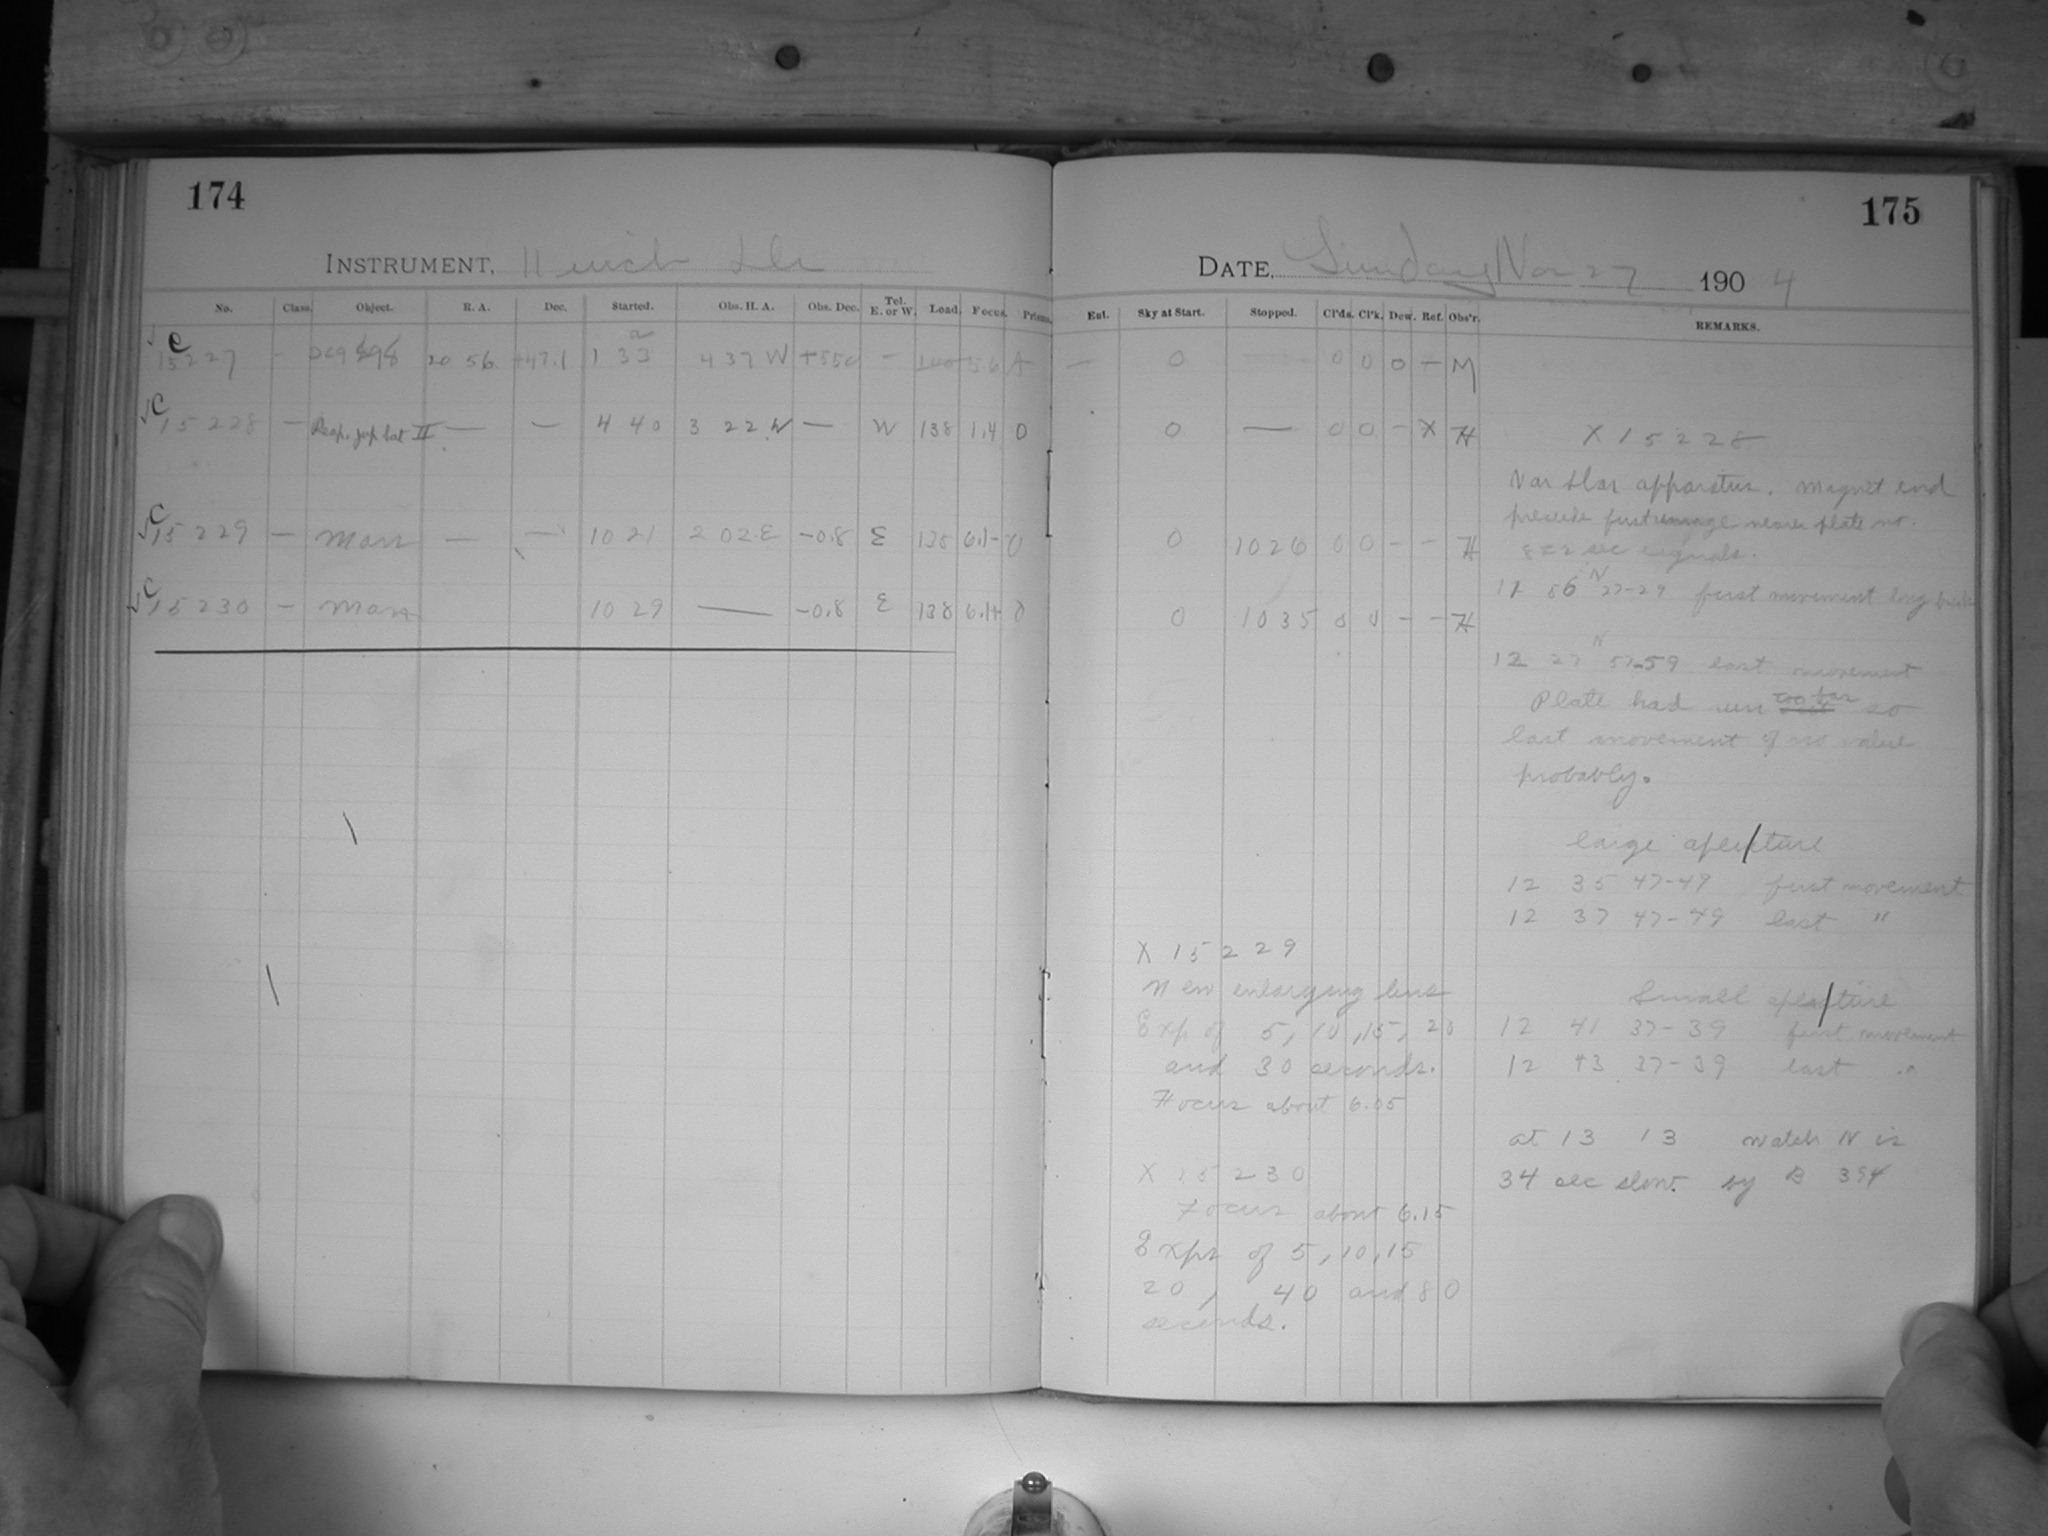 174
INSTRUMENT, 11 inch
No. Class. Object. R. A. Dec. Started. Obs. H. A. Obs. Dec. Tel. E. or W. Load. Focus. Prisms.
C 15227 — 20 56 +47.1 1 33 4 37 W +550 —
C 15228 — Jup Sat II — — 4 40 3 22 W — W 138 1.4 0
C 15229 — Mars — — 10 21 2 02 E -0.8 E 138 0
C 15230 — Mars 10 29 — -0.8 E 138 0
175
DATE, Sunday Nov 27 1904
Ent. Sky at Start. Stopped. Cl'ds. Cl'k. Dew. Ref. Obs'r. REMARKS.
— 0 0 0 0 — M
0 — 0 0 - X H
0 1026 0 0 - - H
0 1035 0 0 - - H
X 15228
apparatus. Magnet end
precede first image nearer plate no.
2 sec signals.
11 56 N 27-29 first movement long
12 27 N 57-59 last movement
Plate had run too far so
last movement of no value
probably.
large aperture
12 35 47-49 first movement
12 37 47-49 last "
Small aperture
12 41 37-39 first movement
12 43 37-39 last "
at 13 13 watch N is
34 sec slow. by B 394
X 15229
New enlarging lens
Exp of 5, 10, 15, 20
and 30 seconds.
Focus about 6.05
X 15230
Focus about 6.15
Exps of 5, 10, 15
20, 40 and 80
seconds.